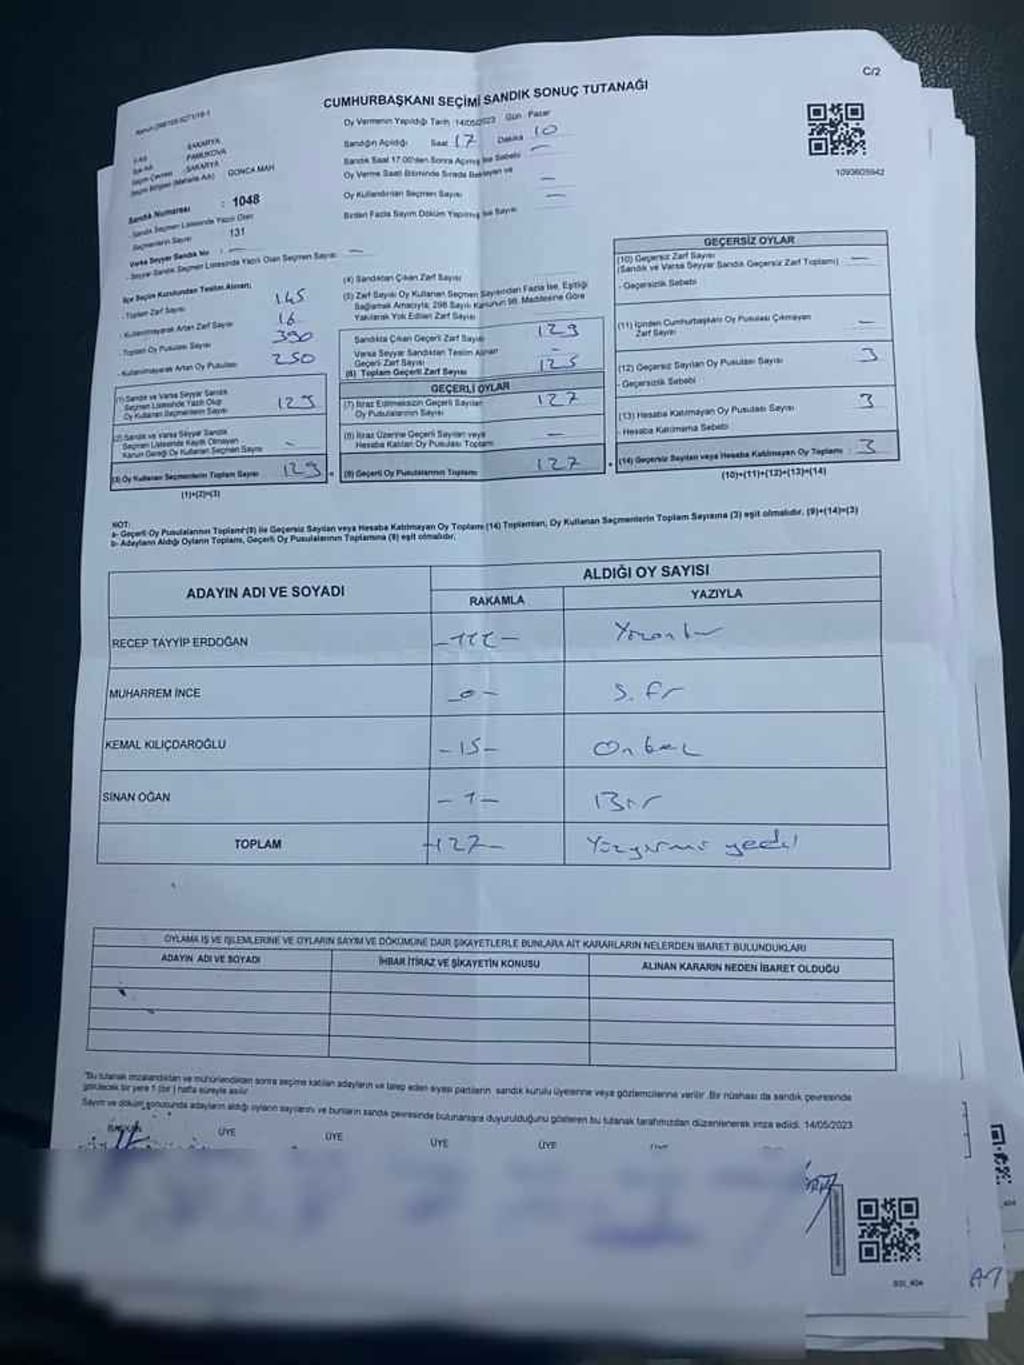 C/2
CUMHURBAŞKANI SEÇİMİ SANDIK SONUÇ TUTANAĞI
Oy Vermenin Yapıldığı Tarih 14/05/2023 Gün Pazar
Sandığın Açıldığı Saat 17 Dakika 10
Sandık Saat 17.00'den Sonra Açılmış İse Sebebi —
Oy Verme Saati Bitiminde Sırada Bekleyen ve
Oy Kullandırılan Seçmen Sayısı —
Birden Fazla Sayım Döküm Yapılmış İse Sayısı —
SAKARYA
PAMUKOVA
SAKARYA
GONCA MAH
1093605942
Sandık Numarası : 1048
Sandık Seçmen Listesinde Yazılı Olan
Seçmenlerin Sayısı 131
Varsa Seyyar Sandık No : —
Seyyar Sandık Seçmen Listesinde Yazılı Olan Seçmen Sayısı : —
İlçe Seçim Kurulundan Teslim Alınan;
- Toplam Zarf Sayısı 145
- Kullanılmayarak Artan Zarf Sayısı 16
- Toplam Oy Pusulası Sayısı 390
- Kullanılmayarak Artan Oy Pusulası 250
(1) Sandık ve Varsa Seyyar Sandık
Seçmen Listesinde Yazılı Olup
Oy Kullanan Seçmenlerin Sayısı 129
(2) Sandık ve Varsa Seyyar Sandık
Seçmen Listesinde Kayıtlı Olmayan
Kanun Gereği Oy Kullanan Seçmen Sayısı —
(3) Oy Kullanan Seçmenlerin Toplam Sayısı 129
(1)+(2)=(3)
(4) Sandıktan Çıkan Zarf Sayısı
(5) Zarf Sayısı Oy Kullanan Seçmen Sayısından Fazla İse, Eşitliği
Sağlamak Amacıyla; 298 Sayılı Kanunun 98. Maddesine Göre
Yakılarak Yok Edilen Zarf Sayısı
Sandıkta Çıkan Geçerli Zarf Sayısı 129
Varsa Seyyar Sandıktan Teslim Alınan
Geçerli Zarf Sayısı —
(6) Toplam Geçerli Zarf Sayısı 125
GEÇERLİ OYLAR
(7) İtiraz Edilmeksizin Geçerli Sayılan
Oy Pusulalarının Sayısı 127
(8) İtiraz Üzerine Geçerli Sayılan veya
Hesaba Katılan Oy Pusulası Toplamı —
(9) Geçerli Oy Pusulalarının Toplamı 127
GEÇERSİZ OYLAR
(10) Geçersiz Zarf Sayısı
(Sandık ve Varsa Seyyar Sandık Geçersiz Zarf Toplamı) —
- Geçersizlik Sebebi
(11) İçinden Cumhurbaşkanı Oy Pusulası Çıkmayan
Zarf Sayısı —
(12) Geçersiz Sayılan Oy Pusulası Sayısı 3
- Geçersizlik Sebebi
(13) Hesaba Katılmayan Oy Pusulası Sayısı 3
- Hesaba Katılmama Sebebi
(14) Geçersiz Sayılan veya Hesaba Katılmayan Oy Toplamı : 3
(10)+(11)+(12)+(13)=(14)
NOT:
a- Geçerli Oy Pusulalarının Toplamı (9) ile Geçersiz Sayılan veya Hesaba Katılmayan Oy Toplamı (14) Toplamları, Oy Kullanan Seçmenlerin Toplam Sayısına (3) eşit olmalıdır. (9)+(14)=(3)
b- Adayların Aldığı Oyların Toplamı, Geçerli Oy Pusulalarının Toplamına (9) eşit olmalıdır.
ADAYIN ADI VE SOYADI
ALDIĞI OY SAYISI
RAKAMLA
YAZIYLA
RECEP TAYYİP ERDOĞAN -111-
MUHARREM İNCE -0- Sıfır
KEMAL KILIÇDAROĞLU -15- Onbeş
SİNAN OĞAN -1- Bir
TOPLAM -127- Yüzyirmi yedi
OYLAMA İŞ VE İŞLEMLERİNE VE OYLARIN SAYIM VE DÖKÜMÜNE DAİR ŞİKAYETLERLE BUNLARA AİT KARARLARIN NELERDEN İBARET BULUNDUKLARI
ADAYIN ADI VE SOYADI
İHBAR İTİRAZ VE ŞİKAYETİN KONUSU
ALINAN KARARIN NEDEN İBARET OLDUĞU
"Bu tutanak imzalandıktan ve mühürlendikten sonra seçime katılan adayların ve talep eden siyasi partilerin sandık kurulu üyelerine veya gözlemcilerine verilir. Bir nüshası da sandık çevresinde
görülecek bir yere 1 (bir) hafta süreyle asılır.
Sayım ve döküm sonucunda adayların aldığı oyların sayılarını ve bunların sandık çevresinde bulunanlara duyurulduğunu gösteren bu tutanak tarafımızdan düzenlenerek imza edildi. 14/05/2023
BAŞKAN ÜYE ÜYE ÜYE ÜYE
A7